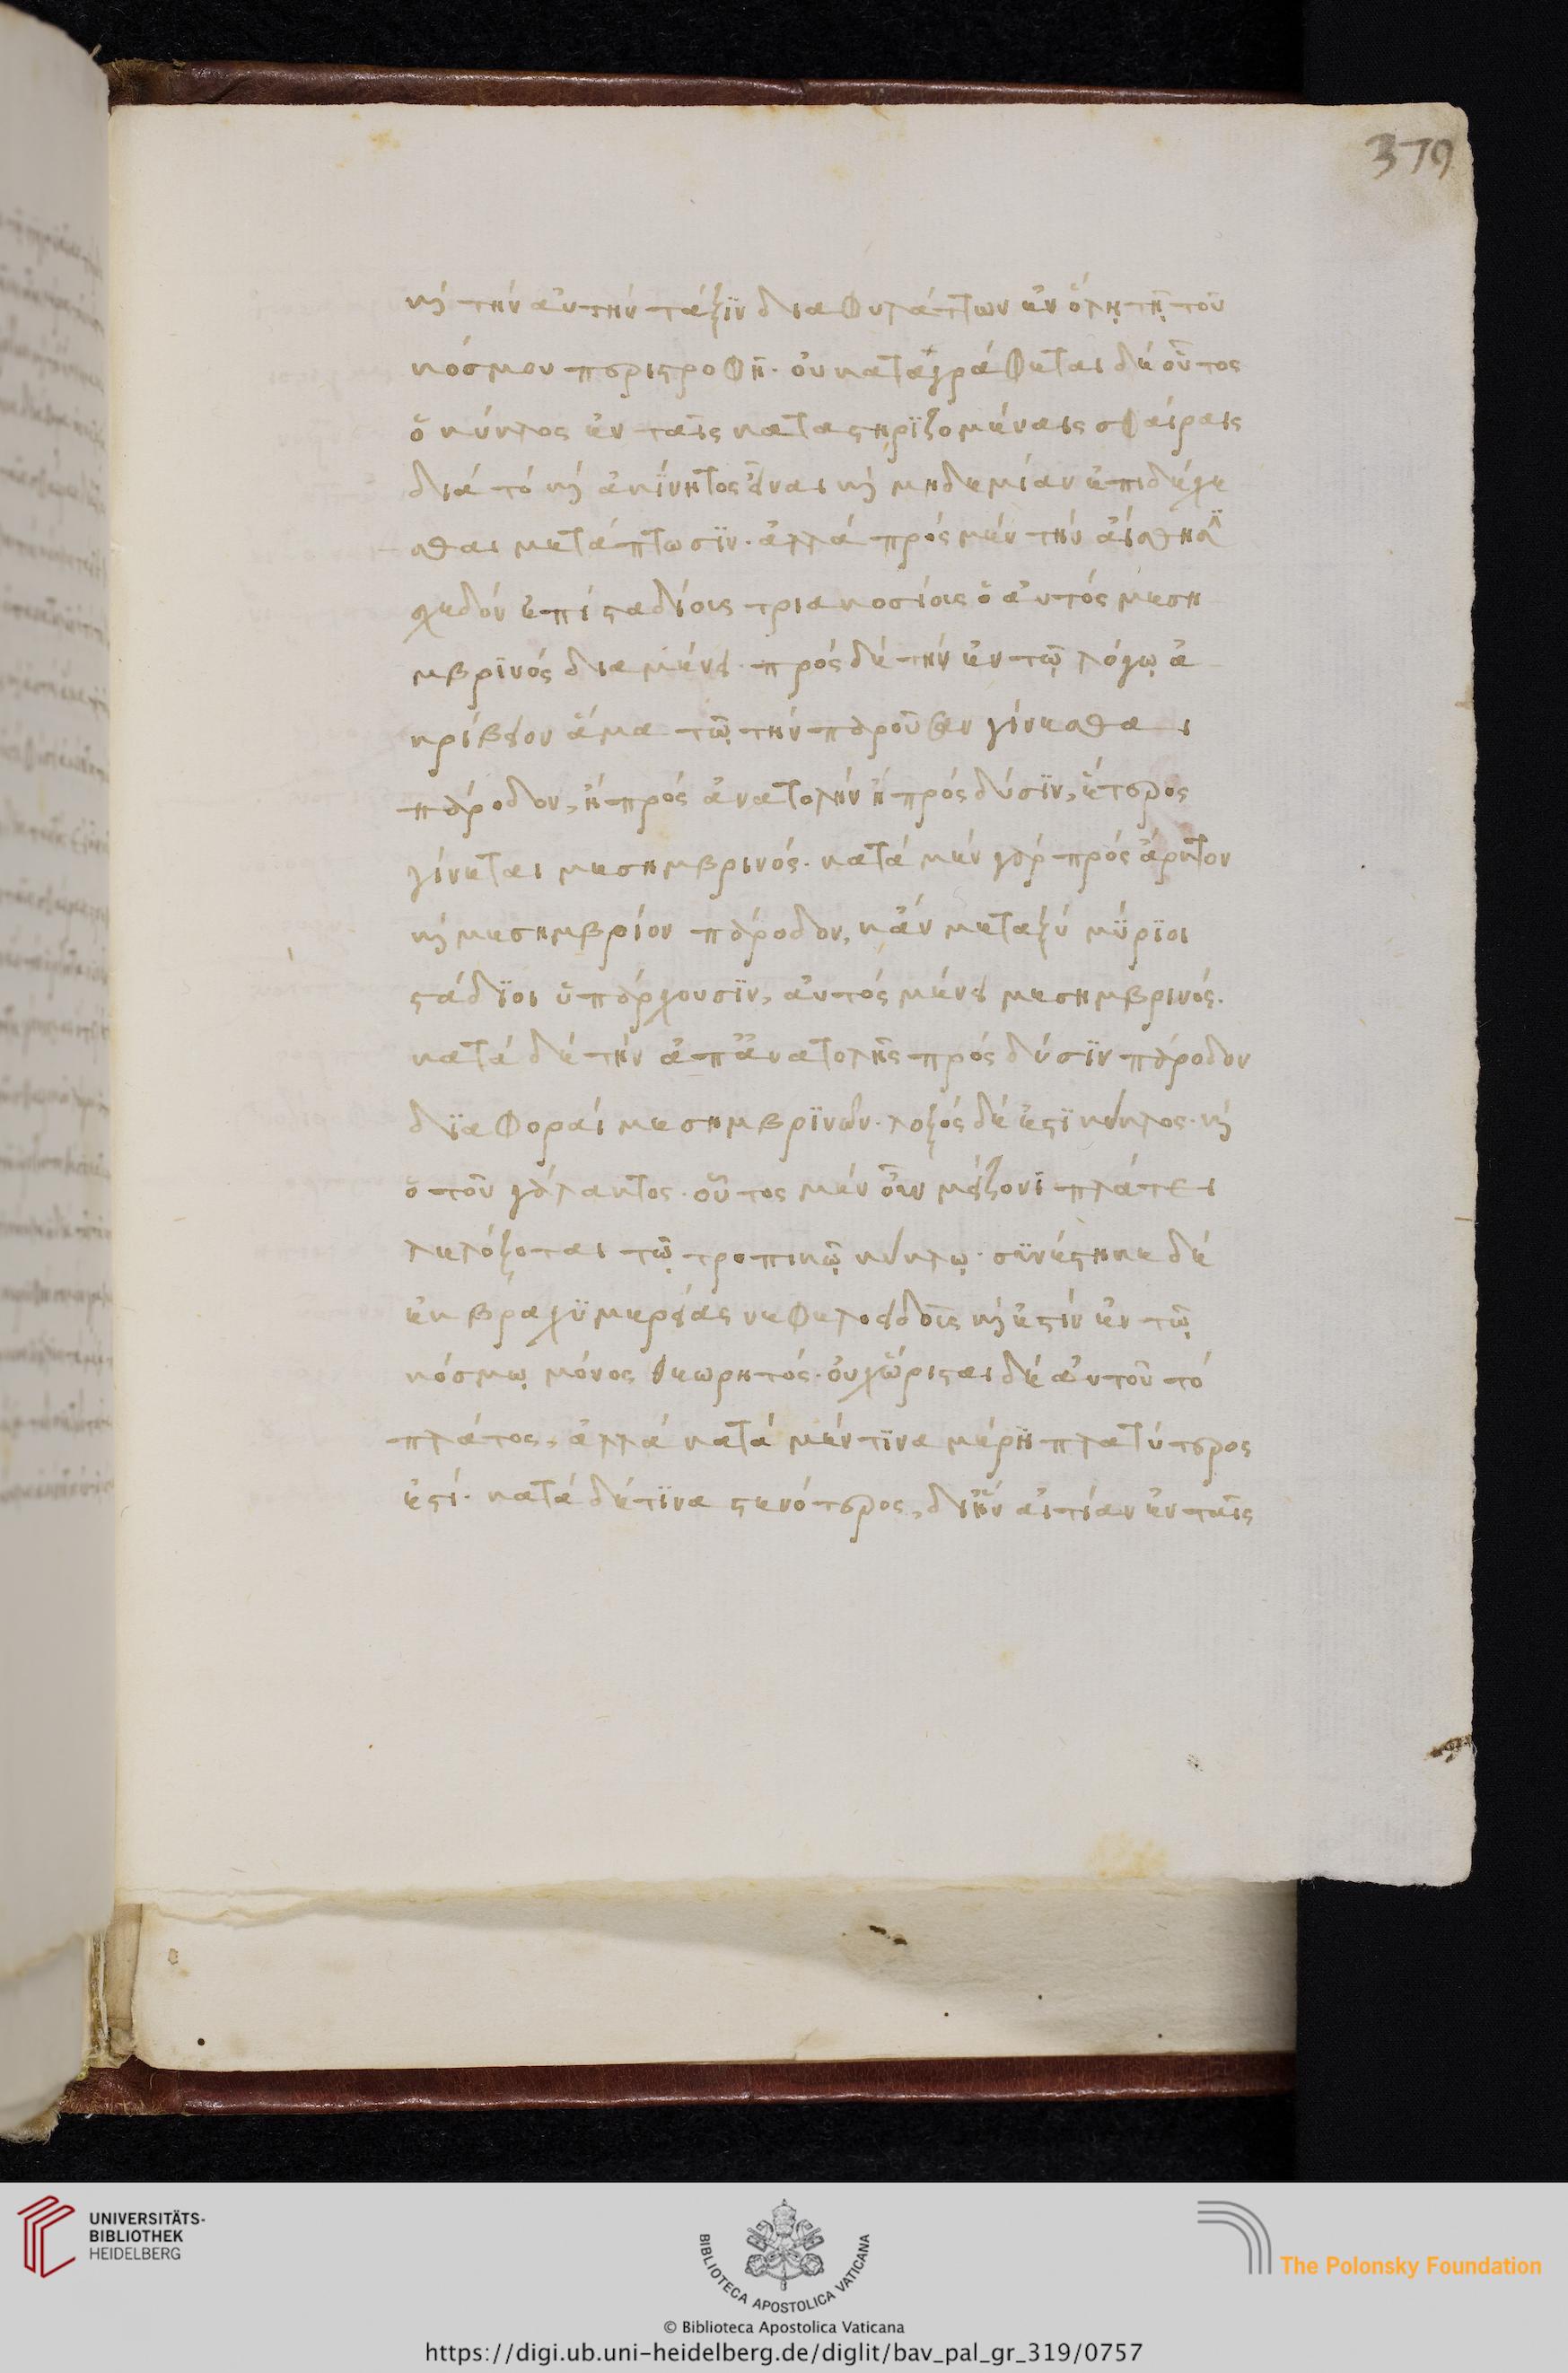 379
καὶ τὴν αὐτὴν τάξϊν διαφυλάττων ἐν ὅλῃ τῇ τοῦ
κόσμου περιστροφῇ· οὐ καταγράφεται δὲ οὗτος
ὁ κύκλος ἐν ταῖς καταστηρϊζομέναις σφαίραις
διὰ τὸ καὶ ἀκίνητος εἶναι καὶ μηδεμίαν ἐπιδέχε
σθαι μετάπτωσϊν· ἀλλὰ πρὸς μὲν τὴν αἴσθησϊν
σχεδὸν ἐπὶ σταδίοις τριακοσίοις ὁ αὐτὸς μεση
μβρϊνὸς διαμένει· πρὸς δὲ τὴν ἐν τῷ λόγῳ ἀ
κρίβειαν ἅμα τῷ τὴν παροῦσαν γίνεσθαι
πάροδον, ἢ πρὸς ἀνατολὴν ἢ πρὸς δύσϊν, ἕτερος
γίνεται μεσημβρινός· κατὰ μὲν γὰρ πρὸς ἄρκτον
καὶ μεσημβρίαν πάροδον, κἂν μεταξὺ μύρϊοι
στάδϊοι ὑπάρχουσϊν, αὐτὸς μένει μεσημβρινός.
κατὰ δὲ τὴν ἀπ' ἀνατολῆς πρὸς δύσϊν πάροδον
δϊαφοραὶ μεσημβρϊνῶν· λοξὸς δέ ἐστϊ κύκλος καὶ
ὁ τοῦ γάλακτος· οὗτος μὲν οὖν μείζονϊ πλάτει
λελόξοται τῷ τροπικῷ κύκλῳ· σϋνέστηκε δὲ
ἐκ βραχϋμερείας νεφελοειδοῖς καὶ ἐστὶν ἐν τῷ
κόσμῳ μόνος θεωρητός· οὐχ ὥρισται δὲ αὐτοῦ τὸ
πλάτος, ἀλλὰ κατὰ μέν τϊνα μέρη πλατύτερος
ἐστί· κατὰ δέ τϊνα στενότερος, δι' ἣν αἰτίαν ἐν ταῖς
UNIVERSITÄTS-
BIBLIOTHEK
HEIDELBERG
BIBLIOTECA APOSTOLICA VATICANA
The Polonsky Foundation
© Biblioteca Apostolica Vaticana
https://digi.ub.uni-heidelberg.de/diglit/bav_pal_gr_319/0757